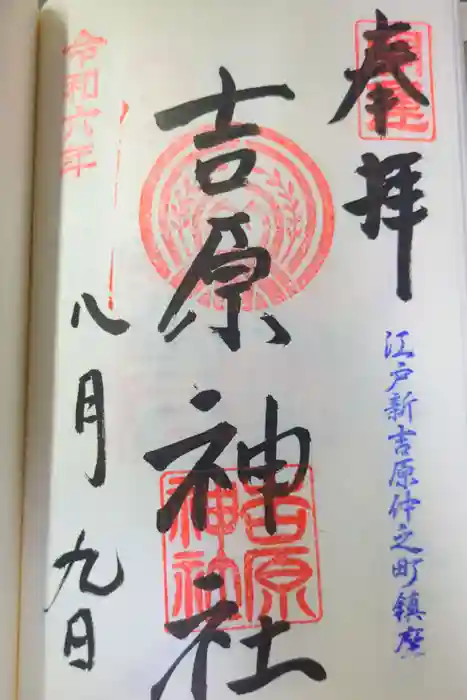 奉拝
江戸新吉原仲之町鎮座
吉原神社
吉原
神社
令和六年
八月九日